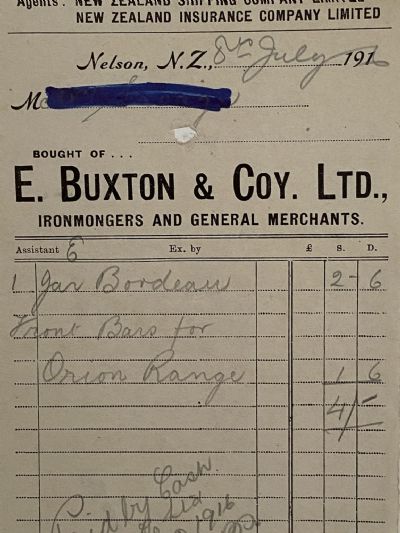 Agents: NEW ZEALAND SHIPPING COMPANY LIMITED
NEW ZEALAND INSURANCE COMPANY LIMITED
Nelson, N.Z., 8th July 1916
M
BOUGHT OF . . .
E. BUXTON & COY. LTD.,
IRONMONGERS AND GENERAL MERCHANTS.
Assistant E Ex. by £ S. D.
1 Jar Bordeau 2 - 6
Front Bars for
Orion Range 1 6
4/-
Paid by Cash
1916